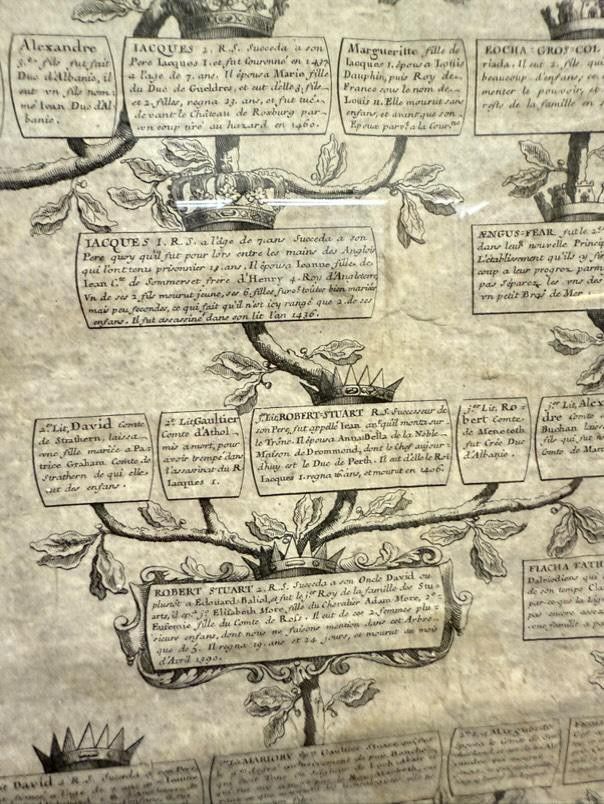 Alexandre
3.e fils fut fait
Duc d'Albanie, il
eut un fils nom:
mé Iean Duc d'Al
banie.
IACQUES 2. R.S. Succeda a son
Pere Iacques I. et fut Couronné en 1437
a l'age de 7. ans. Il épousa Marie fille
du Duc de Gueldres, et eut d'elle 3. fils
et 2. filles, regna 23. ans, et fut tué
devant le Château de Roxburg par
un coup tiré au hazard en 1460.
Margueritte fille de
Iacques 1. épousa Loüis
Dauphin, puis Roy de
France sous le nom de
Loüis 11. Elle mourut sans
enfans, et avant que son
Epoux parvt. a la Couronne
EOCHA=GROS=COL
riada. Il eut 2. fils qui
beaucoup d'enfans, ce
menter le pouvoir, et
rests de la famille en
IACQUES I. R.S. a l'âge de 7. ans Succeda a son
Pere quoy qu'il fut pour lors entre les mains des Anglois
qui l'ont tenu prisonnier 19. ans. Il épousa Ieanne fille de
Iean C.te de Sommerset frere d'Henry 4. Roy d'Angleterre
Un de ses 2. fils mourut jeune, ses 6. filles furt. toutes bien mariées
mais peu fecondes, ce qui fait qu'il n'est icy rangé que 2. de ses
enfans. Il fut assassiné dans son lit l'an 1436.
ÆNGUS=FEAR, fut le 2.d
dans leur nouvelle Princip
L'établissement qu'ils y fi
coup a leur progrez parm
pas Séparez les uns des
un petit Bras de Mer
2.e Lit, David Comte
de Strathern, laissa
une fille mariée a Pa
trice Graham Comte de
Strathern de qui elle
eut des enfans.
2.e Lit Gaultier
Comte d'Athol
mis a mort, pour
avoir trempé dans
l'assasinat du R
Iacques 1.
1.er Lit, ROBERT-STUART R.S. Successeur de
son Pere, fut appellé Iean avt. qu'il montx sur
le Trône. Il épousa Anna Bella de la Noble
Maison de Drommond, dont le Chef aujour
d'huy est le Duc de Perth. Il eut d'elle le Roi
Iacques 1. regna 16. ans, et mourut en 1406.
1.er Lit, Ro=
bert Comte
de Meneteth
fut Crée Duc
d'Albanie.
1.er Lit Alex
dre Comte
Buchan laiss
fils qui fut
Comte de Mar
ROBERT STUART 2. R.S. Succeda a son Oncle David ou
plustôt a Edouard-Baliol, et fut le 1.er Roy de la famille des Stu=
arts, il épsa. 1.o Elisabeth More, fille du Chevalier Adam More, 2.o
Eufemie fille du Comte de Ross. Il eut de ces 2. femmes plu=
sieurs enfans, dont nous ne faisons mention dans cet Arbre
que de 5. Il regna 19. ans et 24. jours, et mourut au mois
d'Avril 1390.
FIACHA
Dalriadiens qui
de son temps
par-ce-que la lign
pas encore
une famille a pa
David 2. R.S. Succeda a son Pere
MARIORY
Margueritte